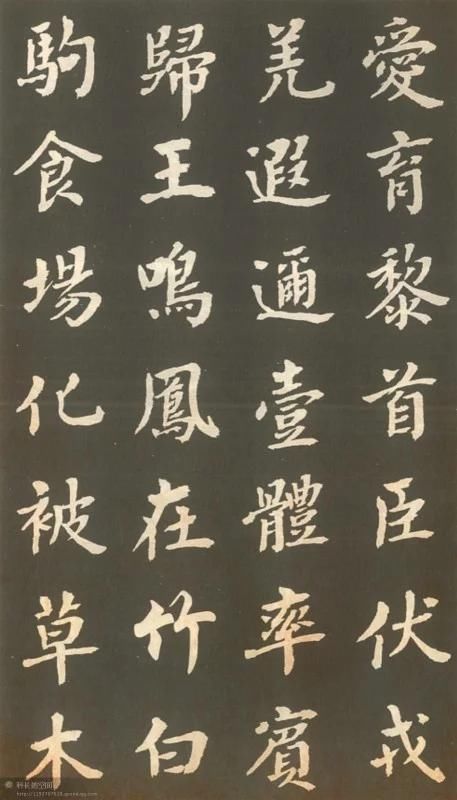 愛育黎首臣伏戎
羌遐邇壹體率賓
歸王鳴鳳在竹白
駒食場化被草木
科长的空间